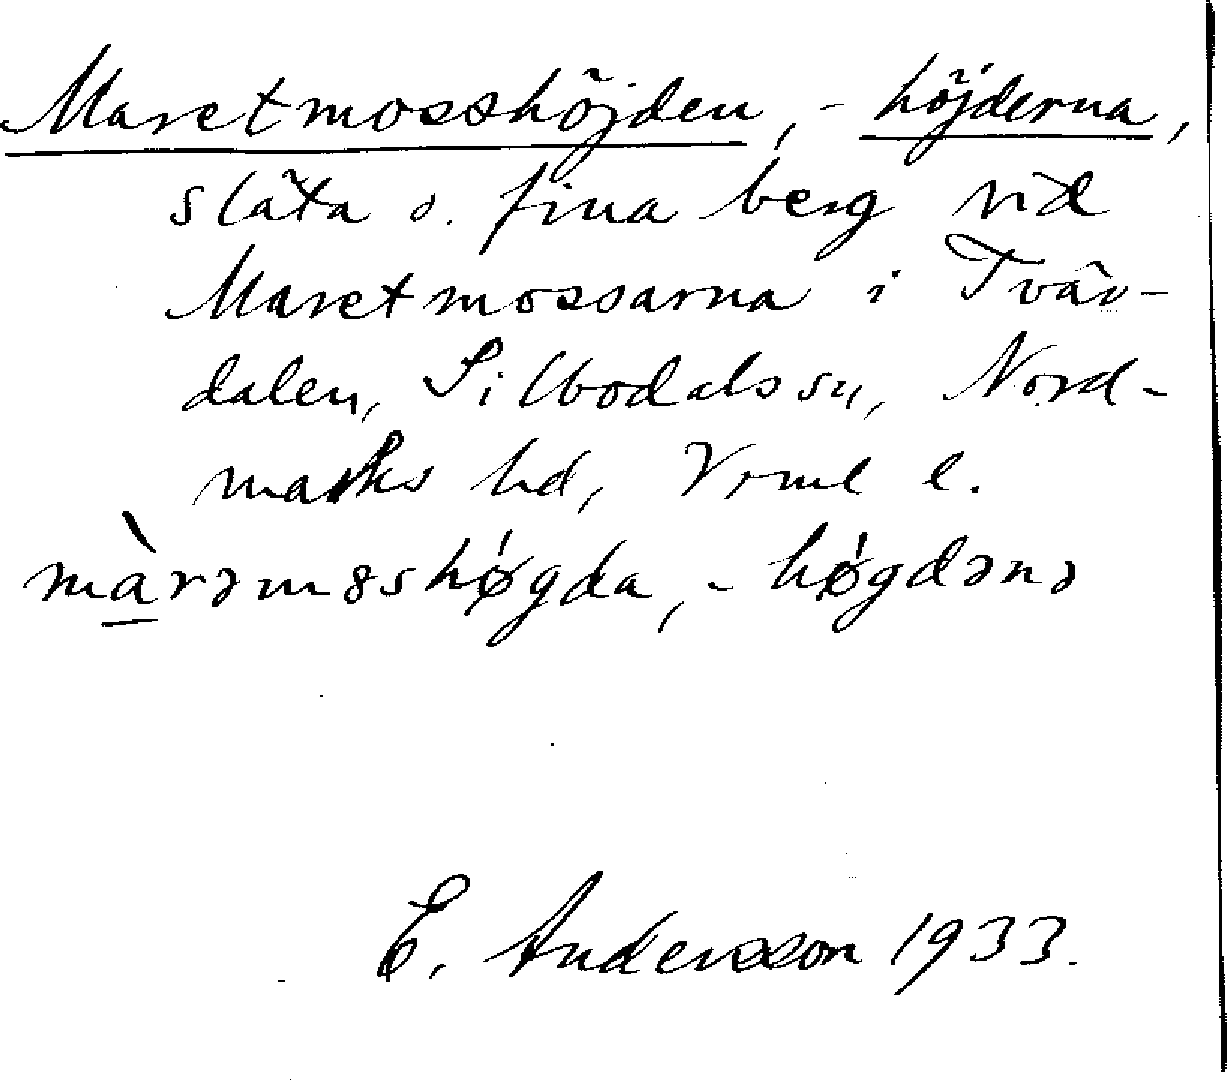 Maretmosshöjden, -höjderna,
släta o. fina berg vid
Maretmossarna i Tvär-
dalen, Silbodals sn, Nord-
marks hd, Vrml l.
màrəmɞshǿgda, -hǿgdənə
E. Andersson 1933.